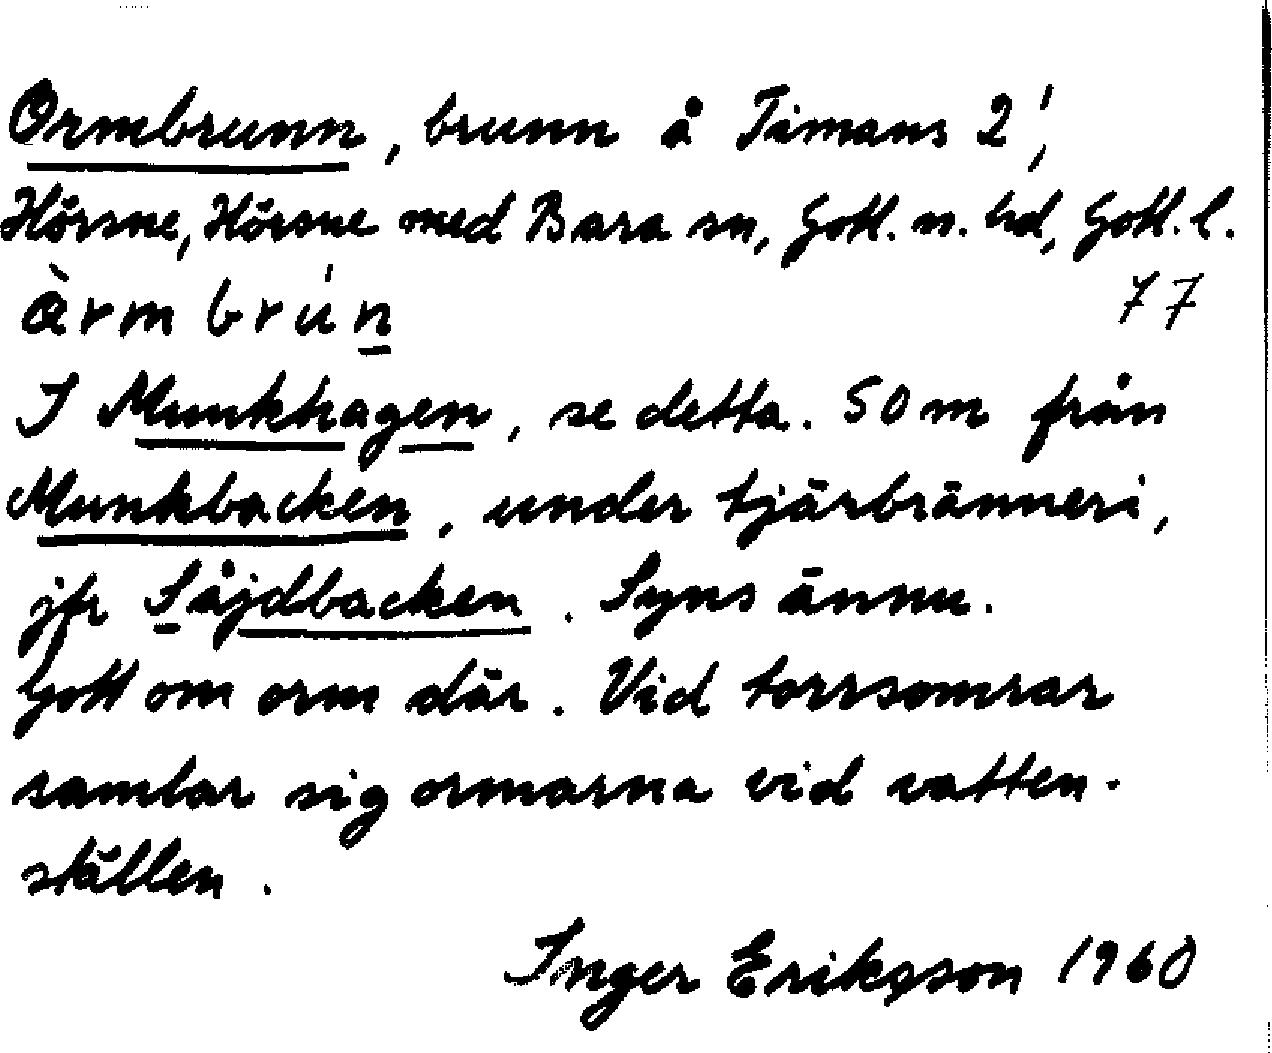 Ormbrunn, brunn å Timans 2¹,
Hörsne, Hörsne med Bara sn, Gotl. n. hd, Gotl. l.
àrmbrún 77
I Munkhagen, se detta. 50 m från
Munkbacken, under tjärbränneri,
jfr Såjdbacken. Syns ännu.
Gott om orm där. Vid torrsomrar
samlar sig ormarna vid vatten-
ställen.
Inger Eriksson 1960